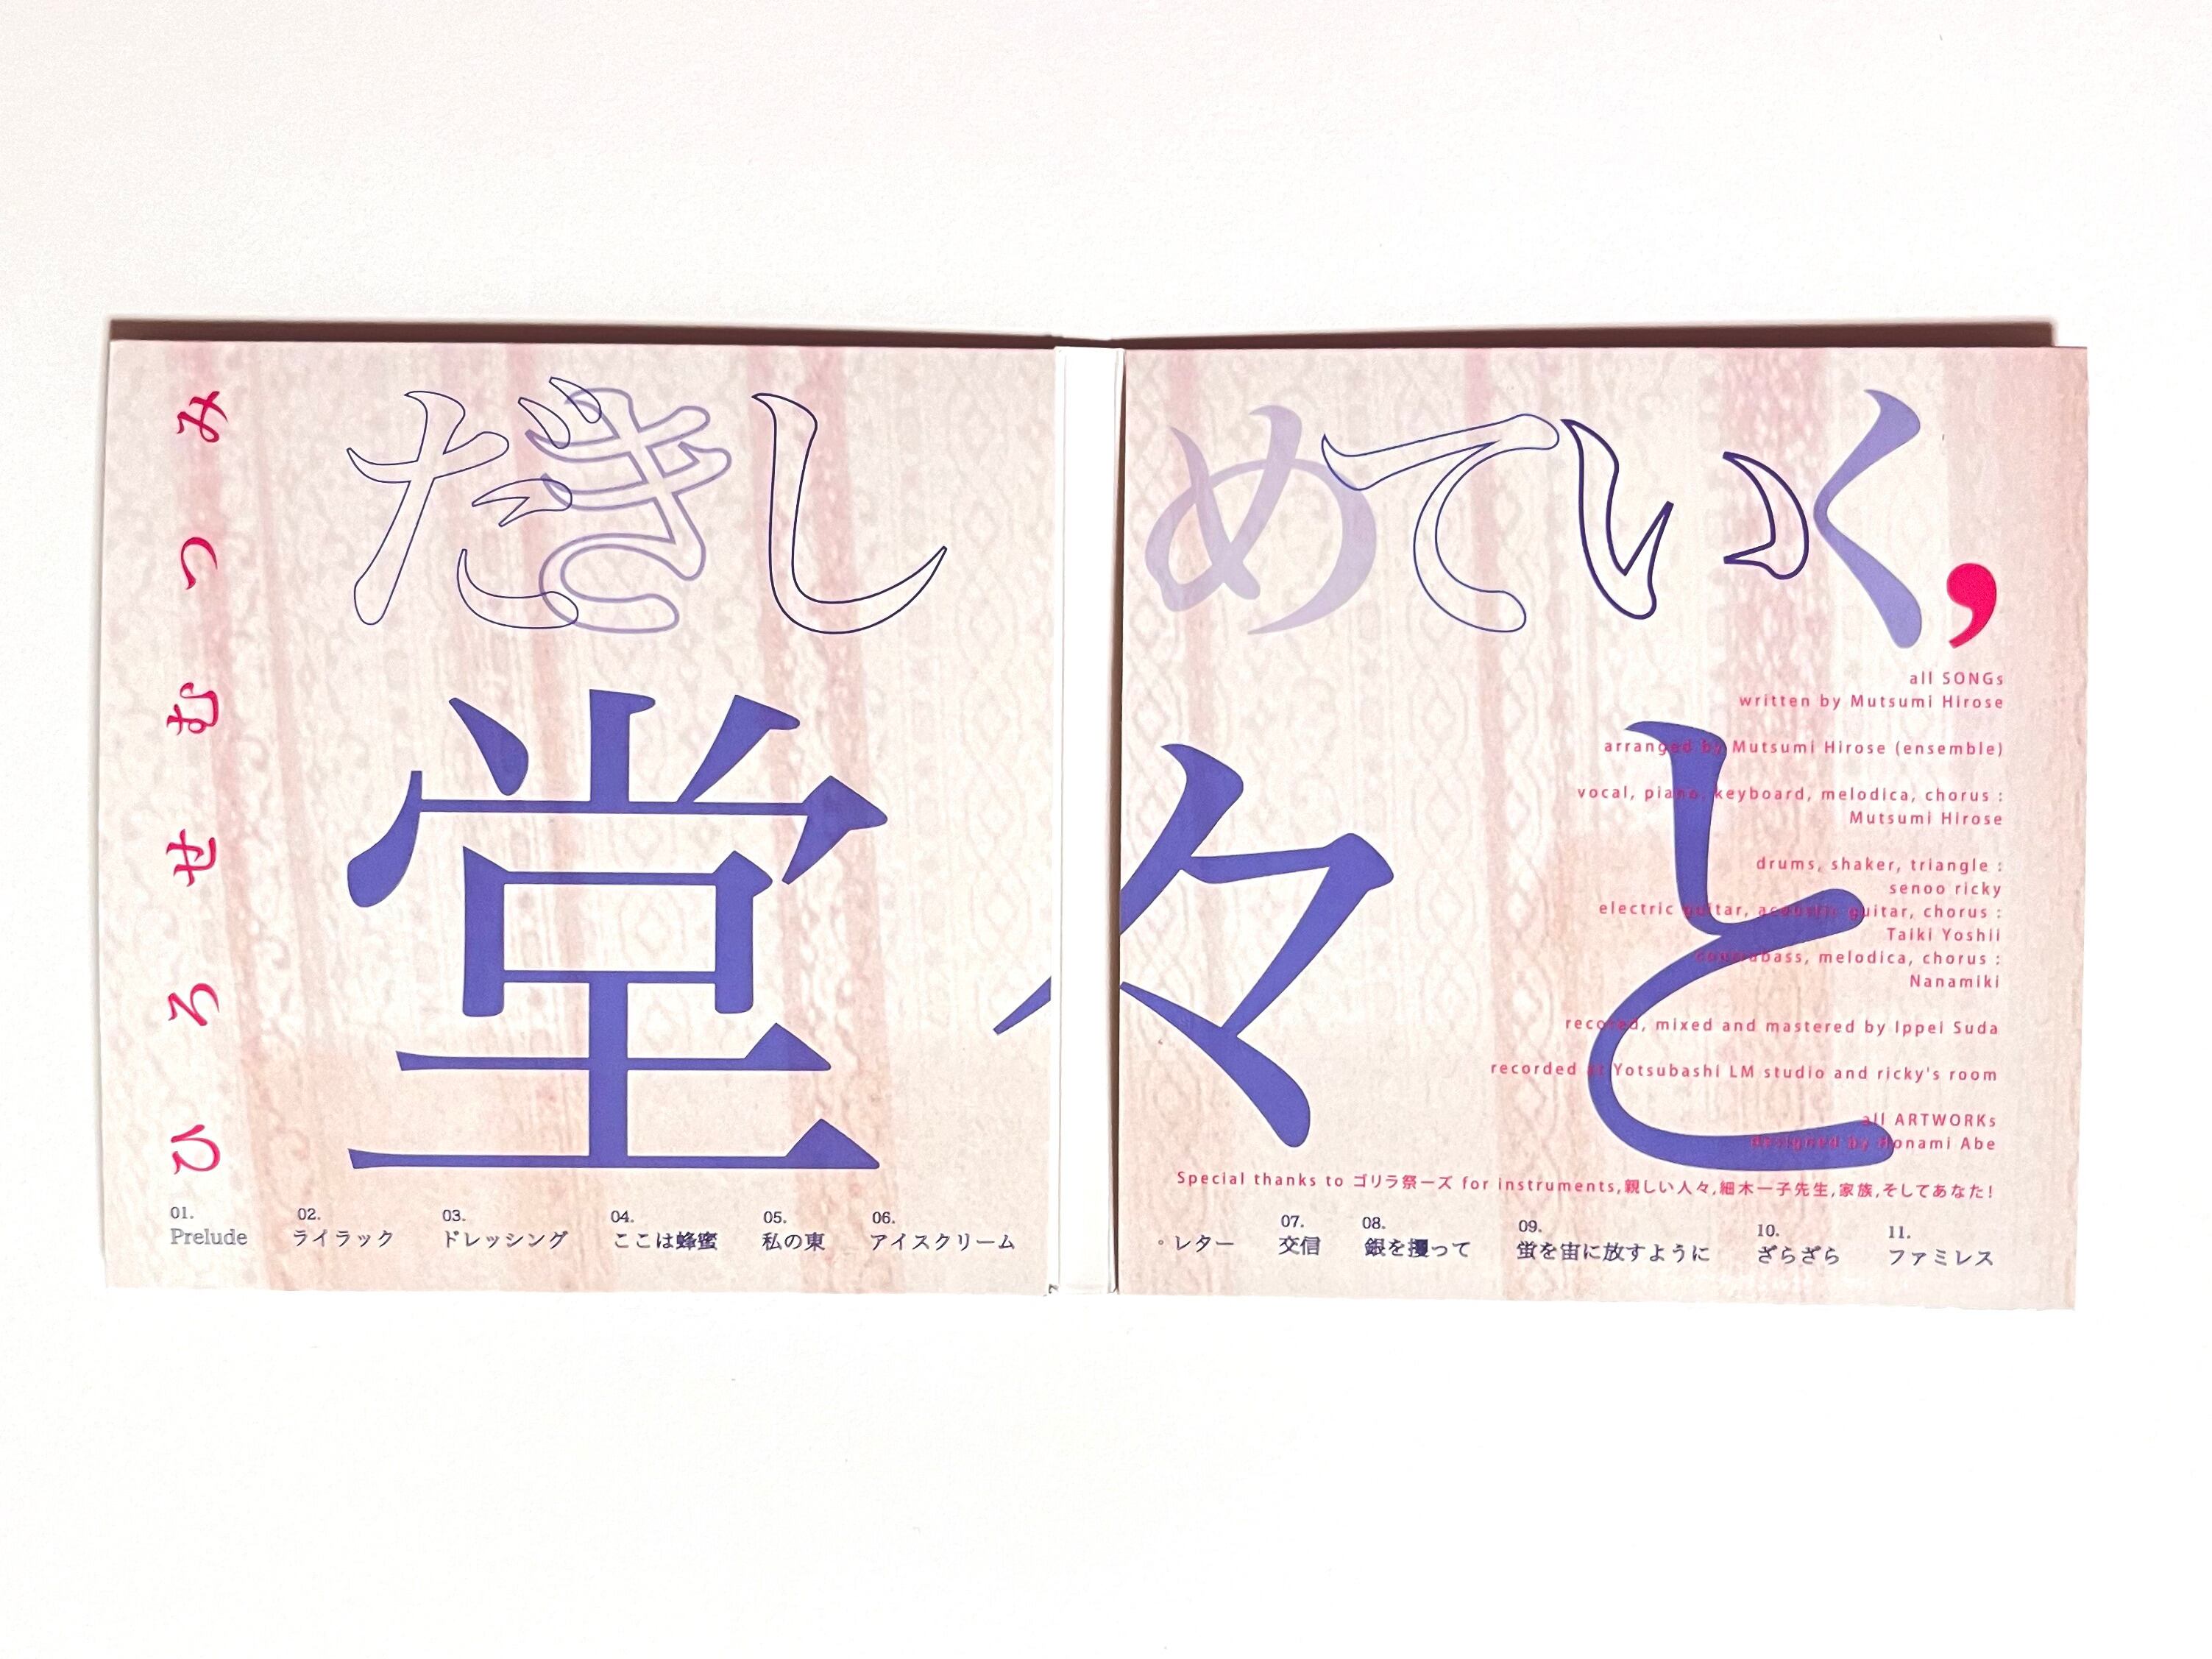 ひろせむつみ
だきしめていく,
堂々と
all SONGs
written by Mutsumi Hirose
arranged by Mutsumi Hirose (ensemble)
vocal, piano, keyboard, melodica, chorus :
Mutsumi Hirose
drums, shaker, triangle :
senoo ricky
electric guitar, acoustic guitar, chorus :
Taiki Yoshii
contrabass, melodica, chorus :
Nanamiki
recored, mixed and mastered by Ippei Suda
recorded at Yotsubashi LM studio and ricky's room
all ARTWORKs
designed by Honami Abe
Special thanks to ゴリラ祭ーズ for instruments,親しい人々,細木一子先生,家族,そしてあなた!
01.
Prelude
02.
ライラック
03.
ドレッシング
04.
ここは蜂蜜
05.
私の東
06.
アイスクリーム。レター
07.
交信
08.
銀を攫って
09.
蛍を宙に放すように
10.
ざらざら
11.
ファミレス